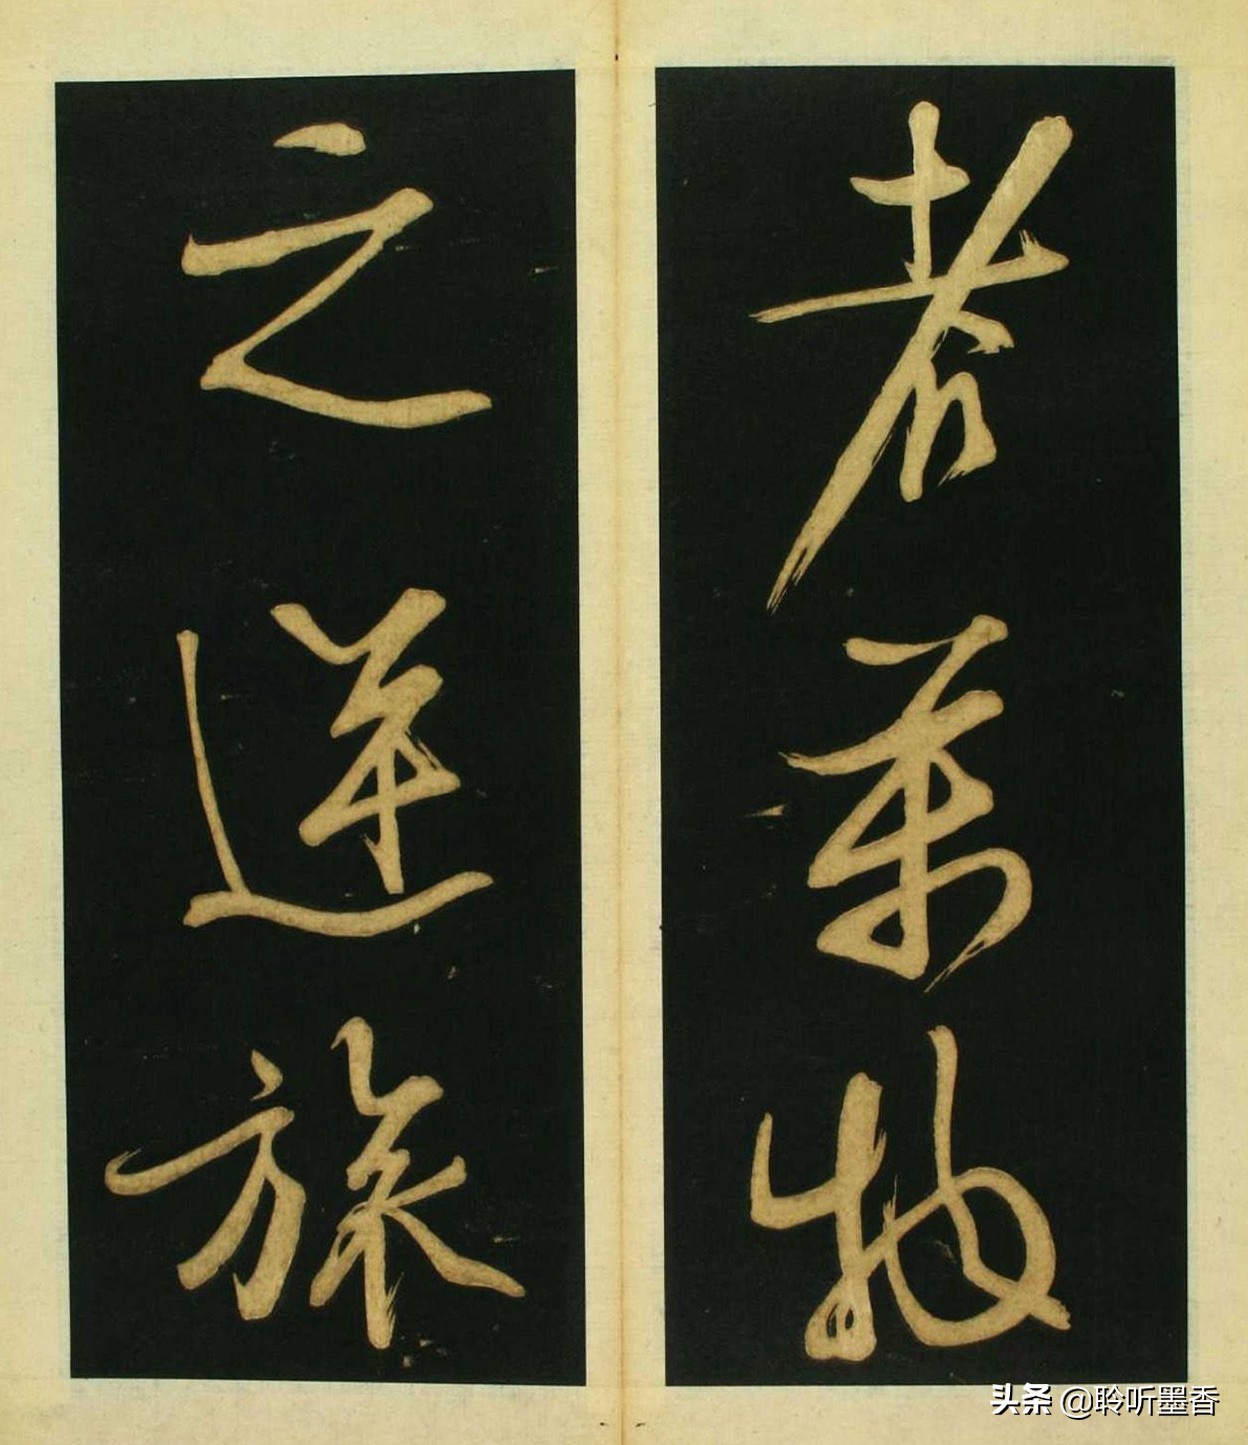 者萬物
之逆旅
头条 @聆听墨香